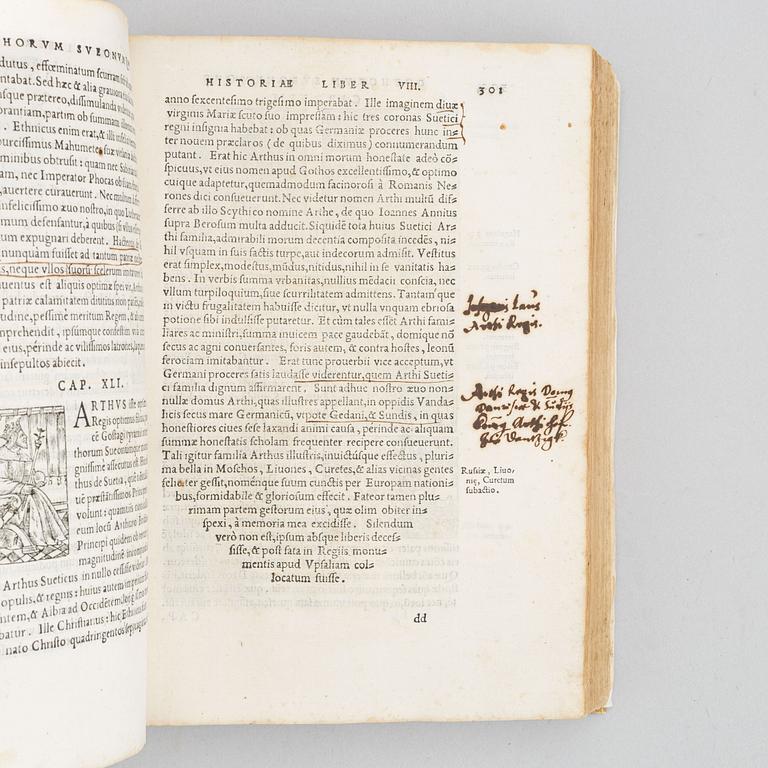 HORVM SVEONVM
dutus, effœminatum scurram
ntabat. Sed hæc & alia
sque prætereo, dissimulanda
orantiam, partim ob summam
. Ethnicus enim erat, &
ourcissimus Mahumete
minibus obtrusit: quam nec
am, nec Imperator Phocas
auertere curauerunt. Nec multum
infelicissimo æuo nostro, in quo
mum defensantur, à quibus
um expugnari deberent.
nunquam fuisset ad tantum
s, neque vllos suorū scelerum
uentus est aliquis optimæ spei vir,
patriæ calamitatem ditituis
udine, pessimè meritum Regem, &
mprehendit, ipsumque confestim
eius, perinde ac vilissimos latrones,
insepultos abiecit.
CAP. XLI.
ARTHVS iste
Regis optimus
cē Gostagi tyranni
thorum Sueonumque
gnissimè assecutus est.
thus de Suetia, que
tuē præstātissimos
volunt: quamuis
eum locū Arthuro
Principi quidem ob
magnitudinē
Arthus Sueticus in nullo cessisse videtur.
opulis, & regnis: huius autem imperium
ntem, & Albia ad Occidētem,
batur. Ille Christianus: hic Ethnicus
nato Christo quadringentos
HISTORIAE LIBER VIII. 301
anno sexcentesimo trigesimo imperabat. Ille imaginem diuæ
virginis Mariæ scuto suo impressam: hic tres coronas Suetici
regni insignia habebat: ob quas Germaniæ proceres hunc in=
ter nouem præclaros (de quibus diximus) connumerandum
putant. Erat hic Arthus in omni morum honestate adeò cō=
spicuus, vt eius nomen apud Gothos excellentissimo, & optimo
cuique adaptetur, quemadmodum facinorosi à Romanis Ne=
rones dici consueuerunt. Nec videtur nomen Arthi multū dif=
ferre ab illo Scythico nomine Arthe, de quo Ioannes Annius
supra Berosum multa adducit. Siquidē tota huius Suetici Ar=
thi familia, admirabili morum decentia composita incedēs, ni=
hil vsquam in suis factis turpe, aut indecorum admisit. Vestitus
erat simplex, modestus, mūdus, nitidus, nihil in se vanitatis ha=
bens. In verbis summa vrbanitas, nullius mēdacii conscia, nec
vllum turpiloquium, siue scurrilitatem admittens. Tantamque
in victu frugalitatem habuisse dicitur, vt nulla vnquam ebriosa
potione sibi indulsisse putaretur. Et cùm tales esset Arthi fami=
liares ac ministri, summa inuicem pace gaudebāt, domique nō
secus ac agni conuersantes, foris autem, & contra hostes, leonū
ferociam imitabantur. Erat tunc prouerbii vice acceptum, vt
Germani proceres satis laudasse viderentur, quem Arthi Sueti=
ci familia dignum affirmarent. Sunt adhuc nostro æuo non=
nullæ domus Arthi, quas illustres appellant, in oppidis Vanda=
licis secus mare Germanicū, vtpote Gedani, & Sundis, in quas
honestiores ciues sese laxandi animi causa, perinde ac aliquam
summæ honestatis scholam frequenter recipere consueuerunt.
Tali igitur familia Arthus illustris, inuictúsque effectus, pluri=
ma bella in Moschos, Liuones, Curetes, & alias vicinas gentes
feliciter gessit, noménque suum cunctis per Europam nationi=
bus, formidabile & gloriosum effecit. Fateor tamen plu=
rimam partem gestorum eius, quæ olim obiter in=
spexi, à memoria mea excidisse. Silendum
verò non est, ipsum absque liberis deces=
sisse, & post fata in Regiis monu=
mentis apud Vpsaliam col=
locatum fuisse.
dd
Laus
Arthi Regis.
Arthi Regis Domus
Arthi hof.
Russiæ, Liuo=
niæ, Curetum
subactio.